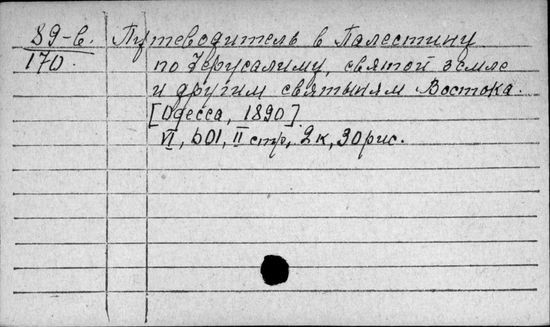 89-в. Путеводитель в Палестину
170. по Іерусалиму, святой земле
и другим святыням Востока.
[Одесса, 1890].
VI, 601, II стр, 2к, 30 рис.